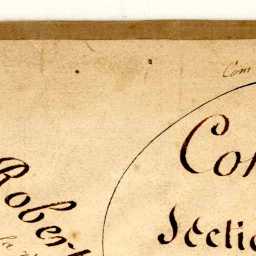 Com
Con
Robert
Sectio
la